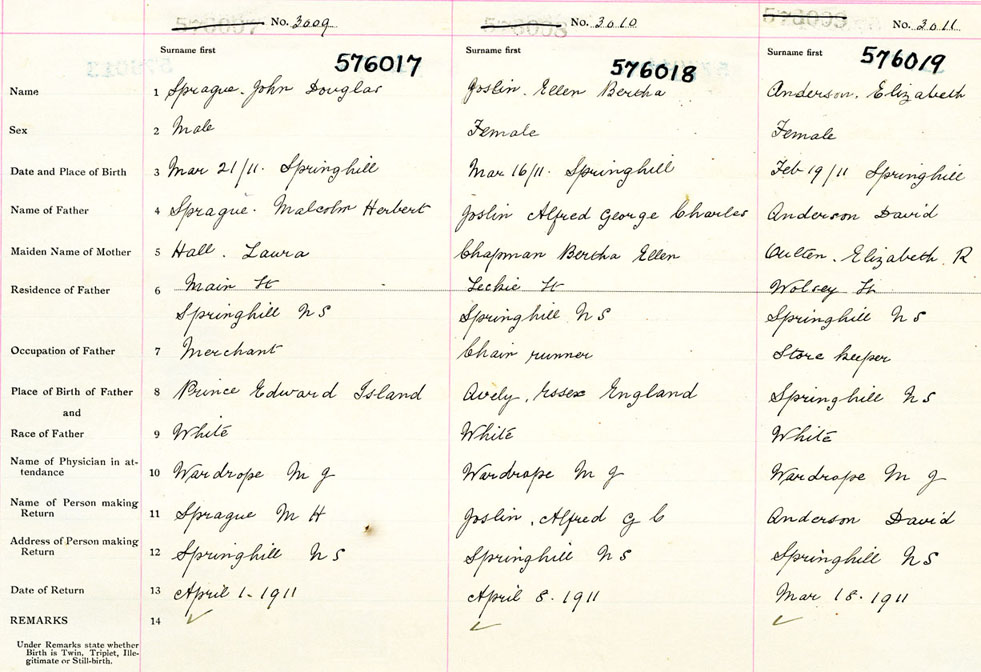 No. 3009 No. 3010 No. 3011
Surname first Surname first Surname first
576017 576018 576019
Name 1 Sprague. John Douglas Joslin. Ellen Bertha Anderson. Elizabeth
Sex 2 Male Female Female
Date and Place of Birth 3 Mar 21/11. Springhill Mar 16/11. Springhill Feb 19/11 Springhill
Name of Father 4 Sprague. Malcolm Herbert Joslin Alfred George Charles Anderson David
Maiden Name of Mother 5 Hall. Laura Chapman Bertha Ellen Oulten. Elizabeth R
Residence of Father 6 Main St Leckie St Wolsey St
Springhill N S Springhill N S Springhill N S
Occupation of Father 7 Merchant Chain runner Store keeper
Place of Birth of Father 8 Prince Edward Island Avely, Essex England Springhill N S
and
Race of Father 9 White White White
Name of Physician in at-
tendance 10 Wardrope M J Wardrope M J Wardrope M J
Name of Person making
Return 11 Sprague M H Joslin, Alfred G C Anderson David
Address of Person making
Return 12 Springhill N S Springhill N S Springhill N S
Date of Return 13 April 1-1911 April 8-1911 Mar 18-1911
REMARKS 14
Under Remarks state whether
Birth is Twin, Triplet, Ille-
gitimate or Still-birth.